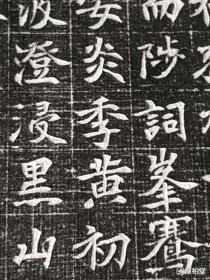 而陟詞峯
安炎季黄初
波澄浸黑山